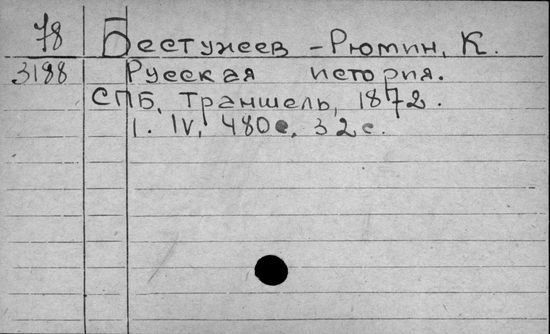 78 Бестужеев - Рюмин, К.
3188 Русская история.
СПБ, Траншель, 1872.
1. IV, 480с, 32с.